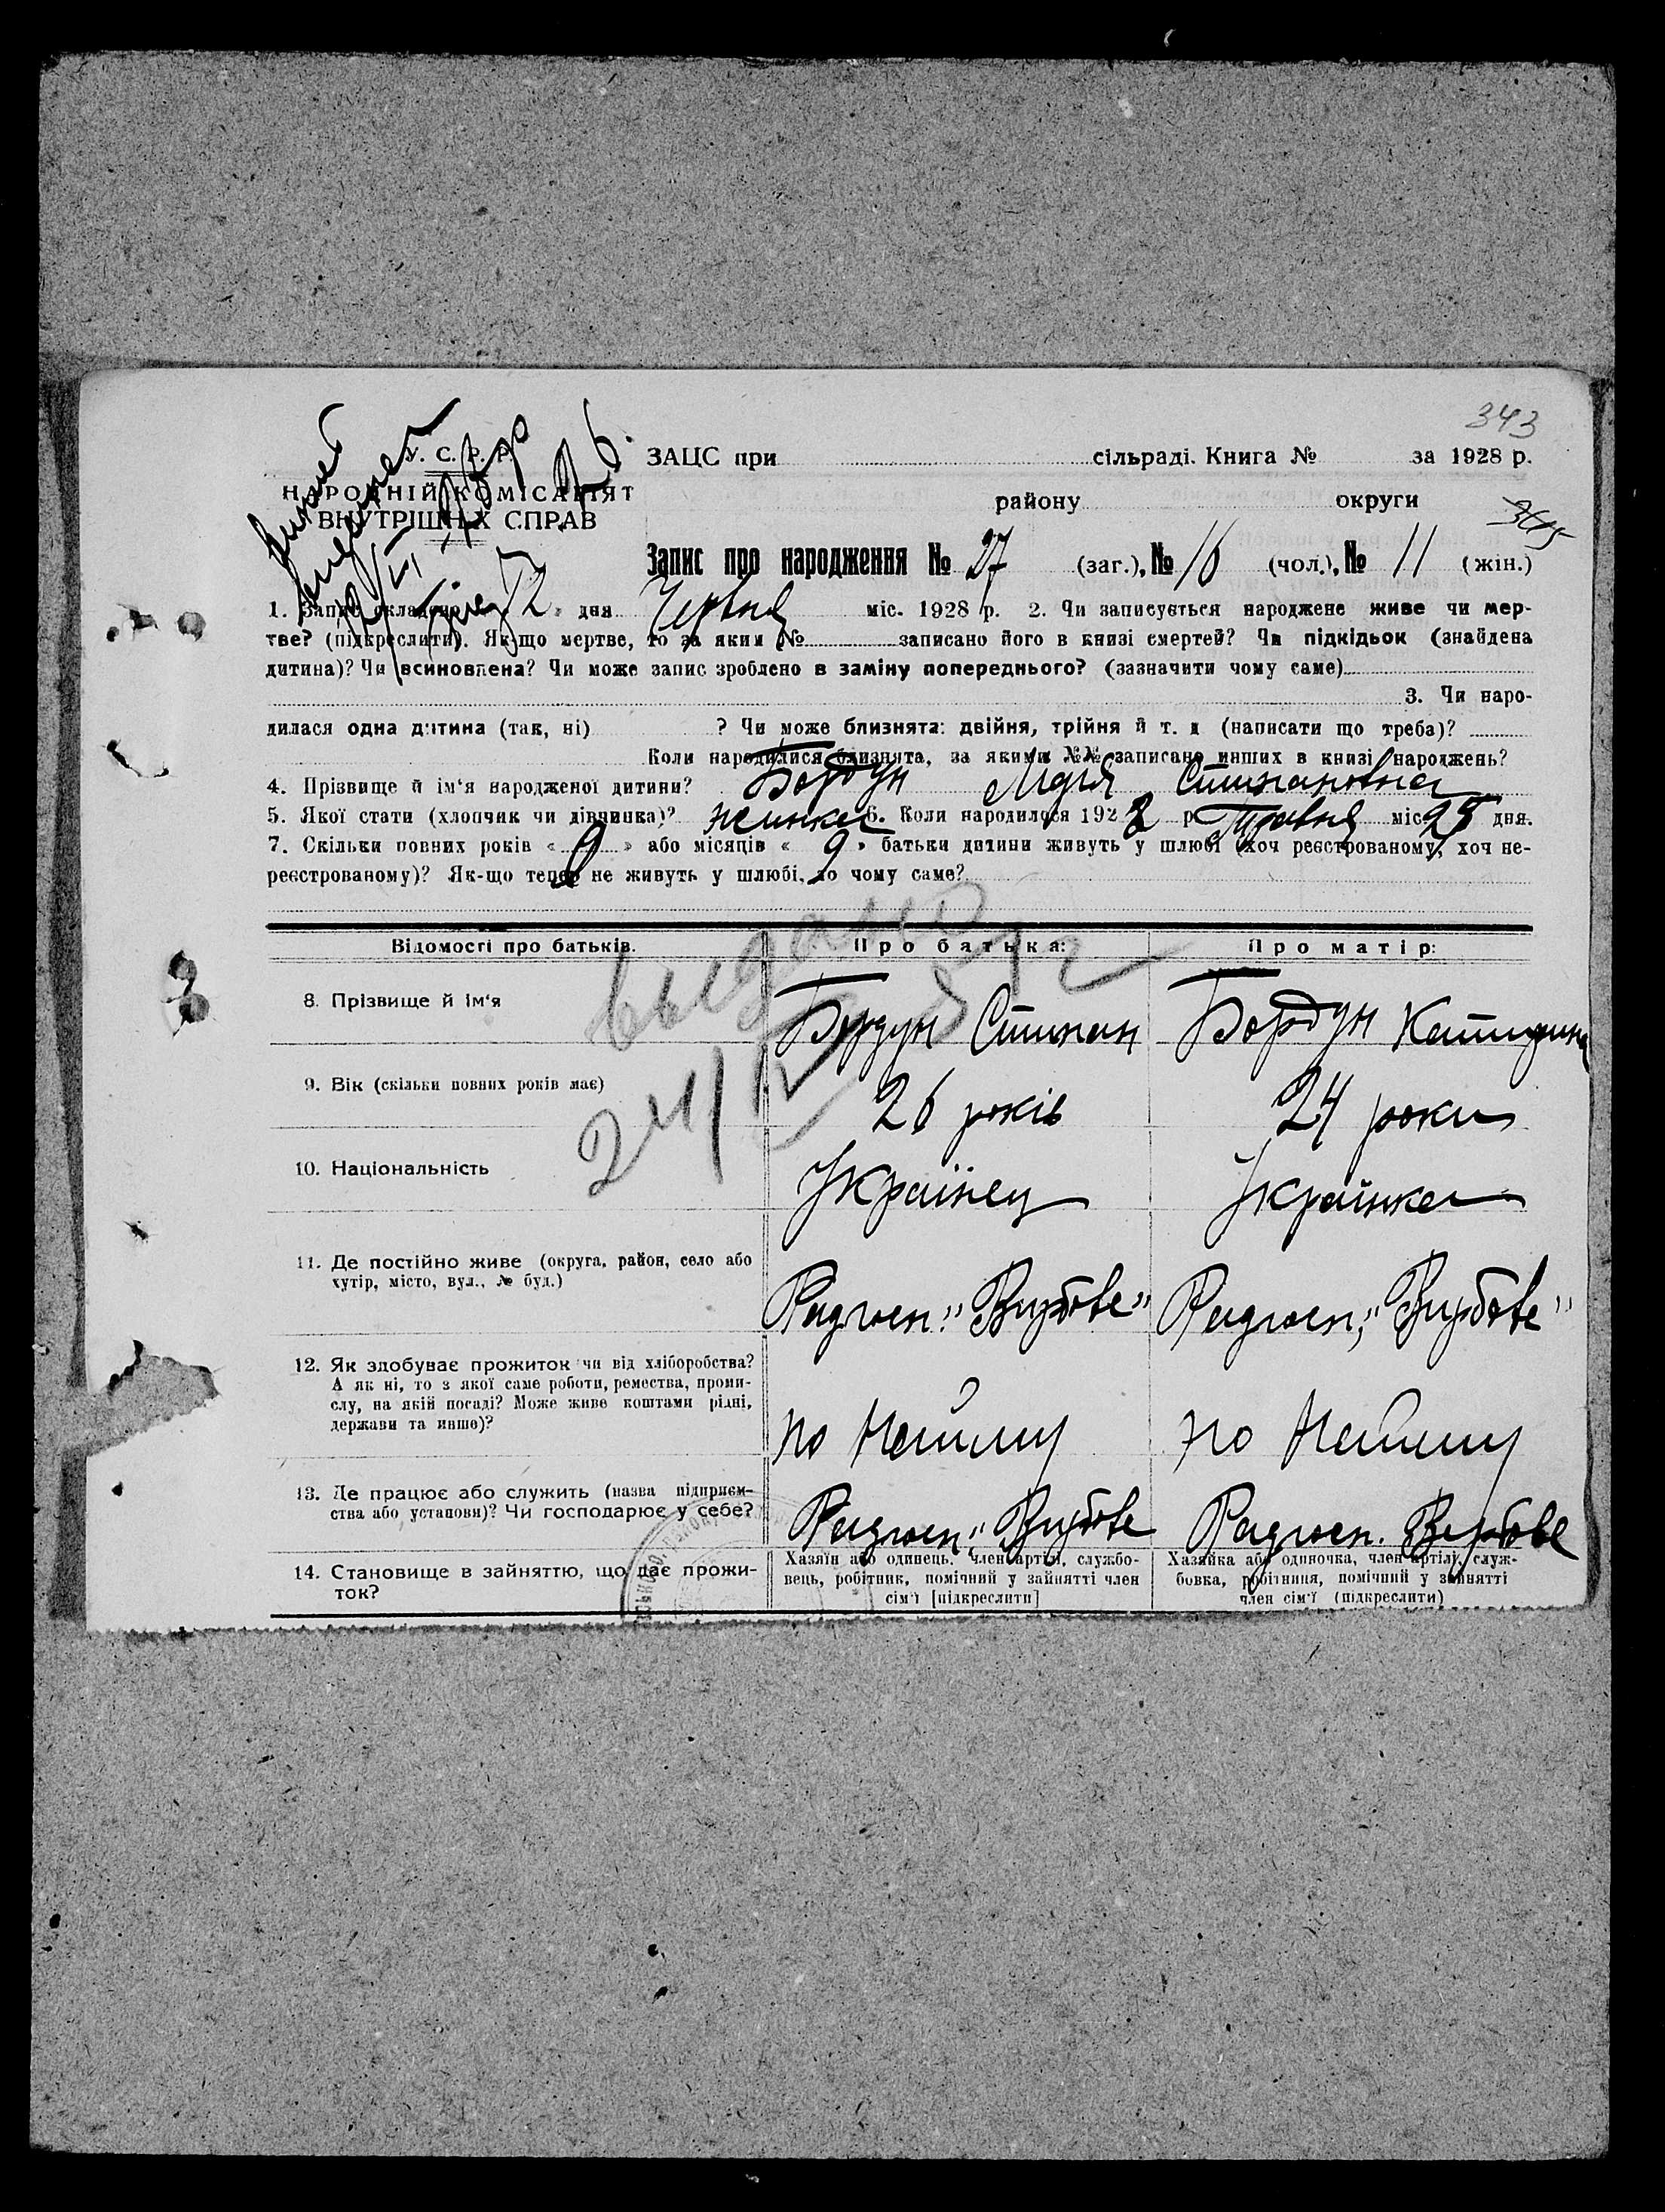 343
У. С. Р. Р.
НАРОДНІЙ КОМІСАРІЯТ
ВНУТРІШНІХ СПРАВ
ЗАЦС при сільраді. Книга № за 1928 р.
району округи
Запис про народження № 27 (заг.), № 16 (чол.), № 11 (жін.)
1. Запис складено 2 дня Червня міс. 1928 р. 2. Чи записується народжене живе чи мер-
тве? (підкреслити). Як-що мертве, то за яким № записано його в книзі смертей? Чи підкідьок (знайдена
дитина)? Чи всиновлена? Чи може запис зроблено в заміну попереднього? (зазначити чому саме)
3. Чи наро-
дилася одна дитина (так, ні) ? Чи може близнята: двійня, трійня й т. д (написати що треба)?
Коли народилися близнята, за якими №№ записано инших в книзі народжень?
4. Прізвище й ім'я народженої дитини? Бордун Марія Стипановна
5. Якої стати (хлопчик чи дівчинка)? жинка 6. Коли народилося 1928 р Травня міс 25 дня.
7. Скільки повних років « 0 » або місяців « 9 » батьки дитини живуть у шлюбі (хоч реєстрованому, хоч не-
реєстрованому)? Як-що тепер не живуть у шлюбі, то чому саме?
видано
Відомості про батьків. Про батька: Про матір:
8. Прізвище й ім'я Бордун Стипан Бордун Катирина
9. Вік (скільки повних років має) 26 років 24 роки
10. Національність Українец Українка
11. Де постійно живе (округа, район, село або
хутір, місто, вул., № буд.)
Радгосп „Вирбове" Радгосп „Вирбове"
12. Як здобуває прожиток чи від хліборобства?
А як ні, то з якої саме роботи, ремества, проми-
слу, на якій посаді? Може живе коштами рідні,
держави та инше)?
по Найму по Найму
13. Де працює або служить (назва підприєм-
ства або установи)? Чи господарює у себе?
Радгосп „Вирбове Радгосп. Вербове
14. Становище в зайняттю, що дає прожи-
ток?
Хазяїн або одинець, член артілі, службо-
вець, робітник, помічний у зайнятті член
сім'ї [підкреслити]
Хазяйка або одиночка, член артілі, служ-
бовка, робітниця, помічний у зайнятті
член сім'ї (підкреслити)